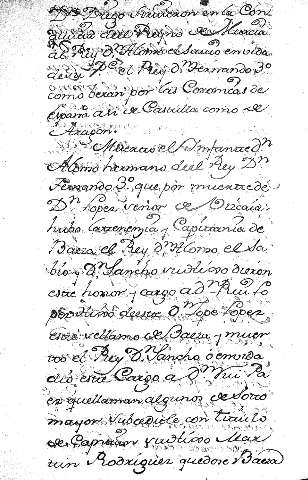 Dⁿ Diego sirvieron en la Con
quista del Reyno de Murcia
al Rey Dⁿ Alonso el Savio en vida
del Rey Dⁿ Fernando 3º
como beran por las Coronicas de
España asi de Castilla como de
Aragon.
Muerto el Infante dⁿ
Alonso hermano del Rey Dⁿ
Fernando 3º que por muerte de
Dⁿ Lope señor de Vizcaia
hubo la tenencia y Capitania de
Baeza el Rey Dⁿ Alonso el Sa
bio y Dⁿ Sancho su hijo dieron
este honor y cargo a dⁿ Rui Lo
pez hijo deste Dⁿ Lope Lopez
este se llamo de Baeza y muer
to el Rey Dⁿ Sancho o en vida
dio este Cargo a Dⁿ Rui Pa
ez que llaman algunos de Soto
mayor subcediole con titulo
de Capitan su hijo Mar
tin Rodriguez quedose Baeza